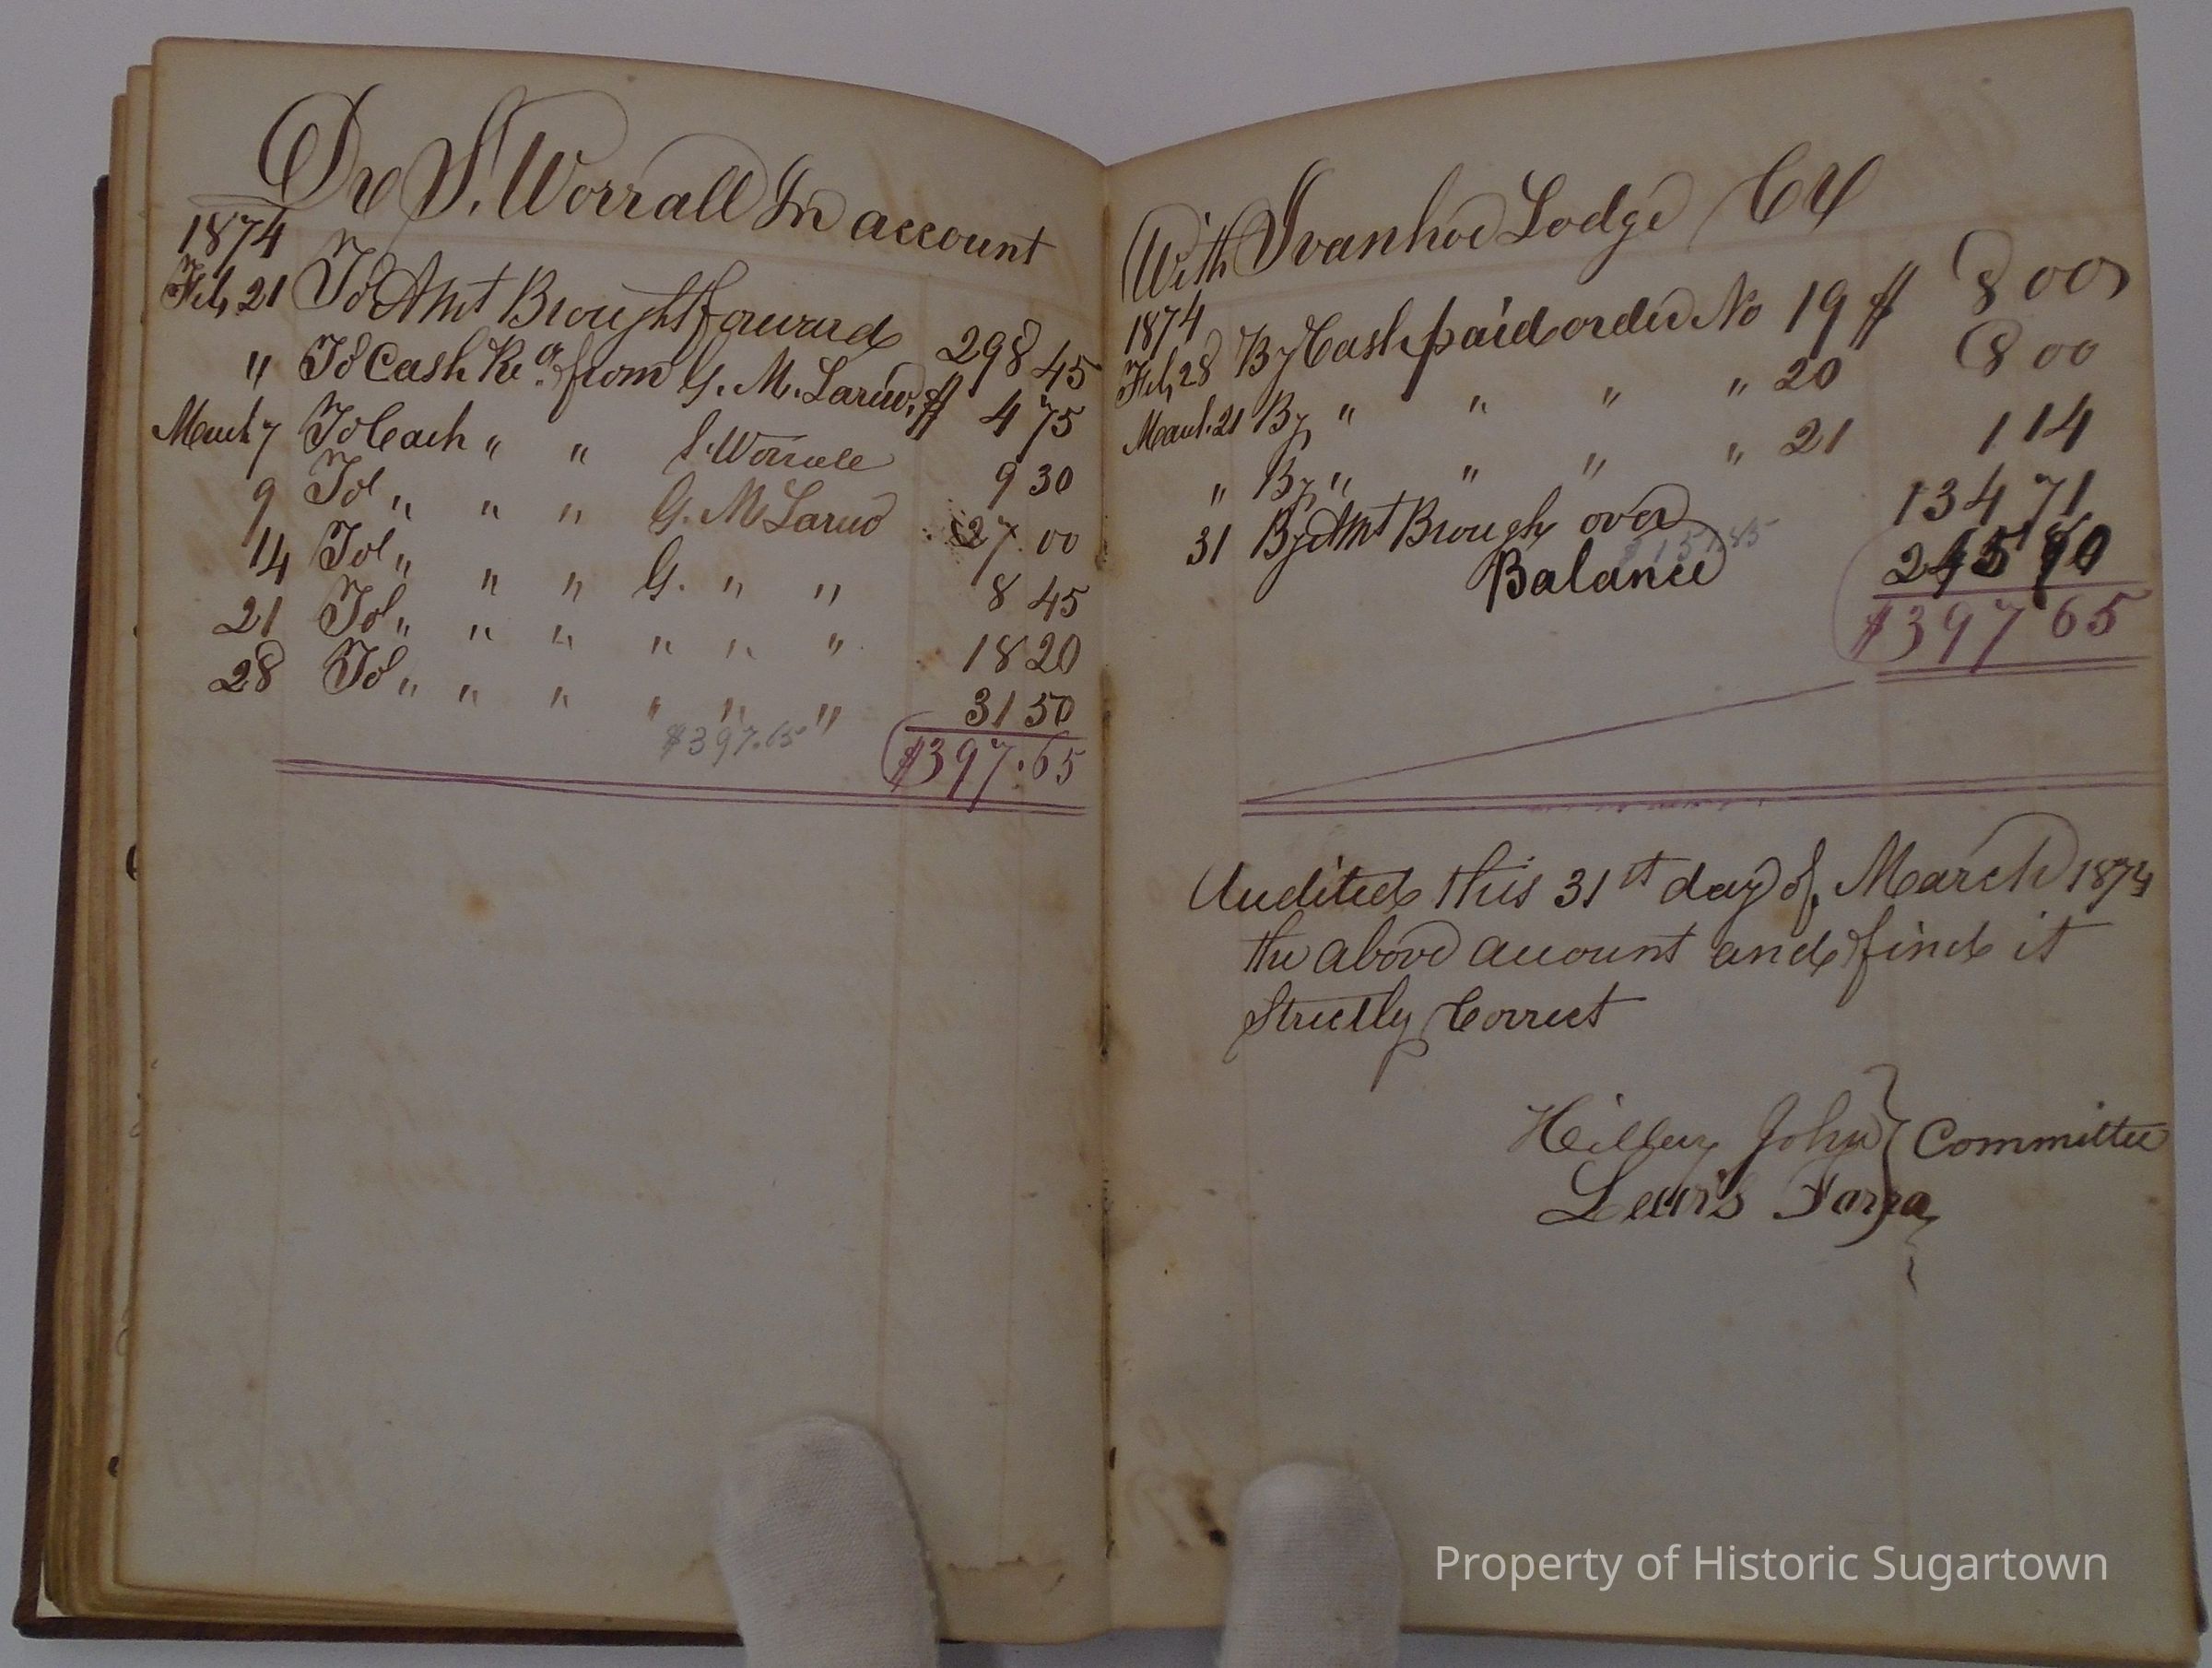 Dr S. Worrall In account
1874
Feb, 21 To Amt Brought forward 298 45
" To Cash Recd. from G. M. Larue, $ 4 75
March 7 To Cash " " S. Worrall 9 30
9 To " " " G. M Larue 27.00
14 To " " " G. " " 8 45
21 To " " " " " " 18 20
28 To " " " " " " 31 50
$397.65
$397.65
With Ivanhoe Lodge Cr
1874
Feb, 28 By Cash paid order No 19 $ 8 00
March. 21 By " " " " 20 8 00
" By " " " " 21 1 14
31 By Amt Brough over 134 71
$151.85
Balance 245 80
$397 65
Audited this 31st day of March 1874
the above account and find it
Strictly Correct
Hilley John } Committee
Lewis Farra
Property of Historic Sugartown